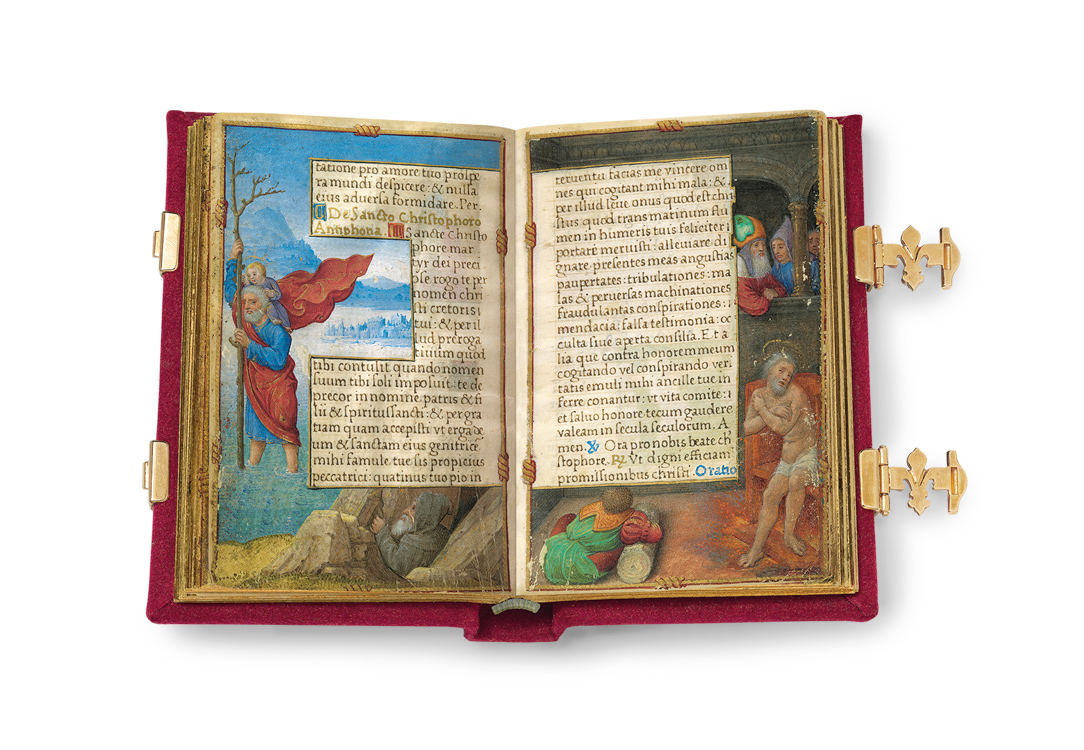 tatione pro amore tuo prospe
ra mundi despicere: & nulla
eius aduersa formidare. Per.
De Sancto Christophoro
Antiphona. Sancte Christo
phore mar
tyr dei preci
ose rogo te per
nomen chri
sti cretoris
tui: & per il
lud preroga
tiuum quod
tibi contulit quando nomen
suum tibi soli imposuit: te de
precor in nomine patris & fi
lii & spiritussancti: & per gra
tiam quam accepisti vt erga de
um & sanctam eius genitricē
mihi famule tue sis propicius
peccatrici: quatinus tuo pio in
teruentu facias me vincere om
nes qui cogitant mihi mala: &
per illud leue onus quod est chri
stus quod trans marinum flu
men in humeris tuis feliciter
portare meruisti: alleuiare di
gnare presentes meas angustias
paupertates: tribulationes: ma
las & peruersas machinationes
fraudulantas conspirationes:
mendacia: falsa testimonia: oc
culta siue aperta consilia. Et a
lia que contra honorem meum
cogitando vel conspirando veri
tatis emuli mihi ancille tue in
ferre conantur: vt vita comite:
et saluo honore tecum gaudere
valeam in secula seculorum. A
men. ℣ Ora pro nobis beate chri
stophore. ℟ Vt digni efficiani
promissionibus christi. Oratio